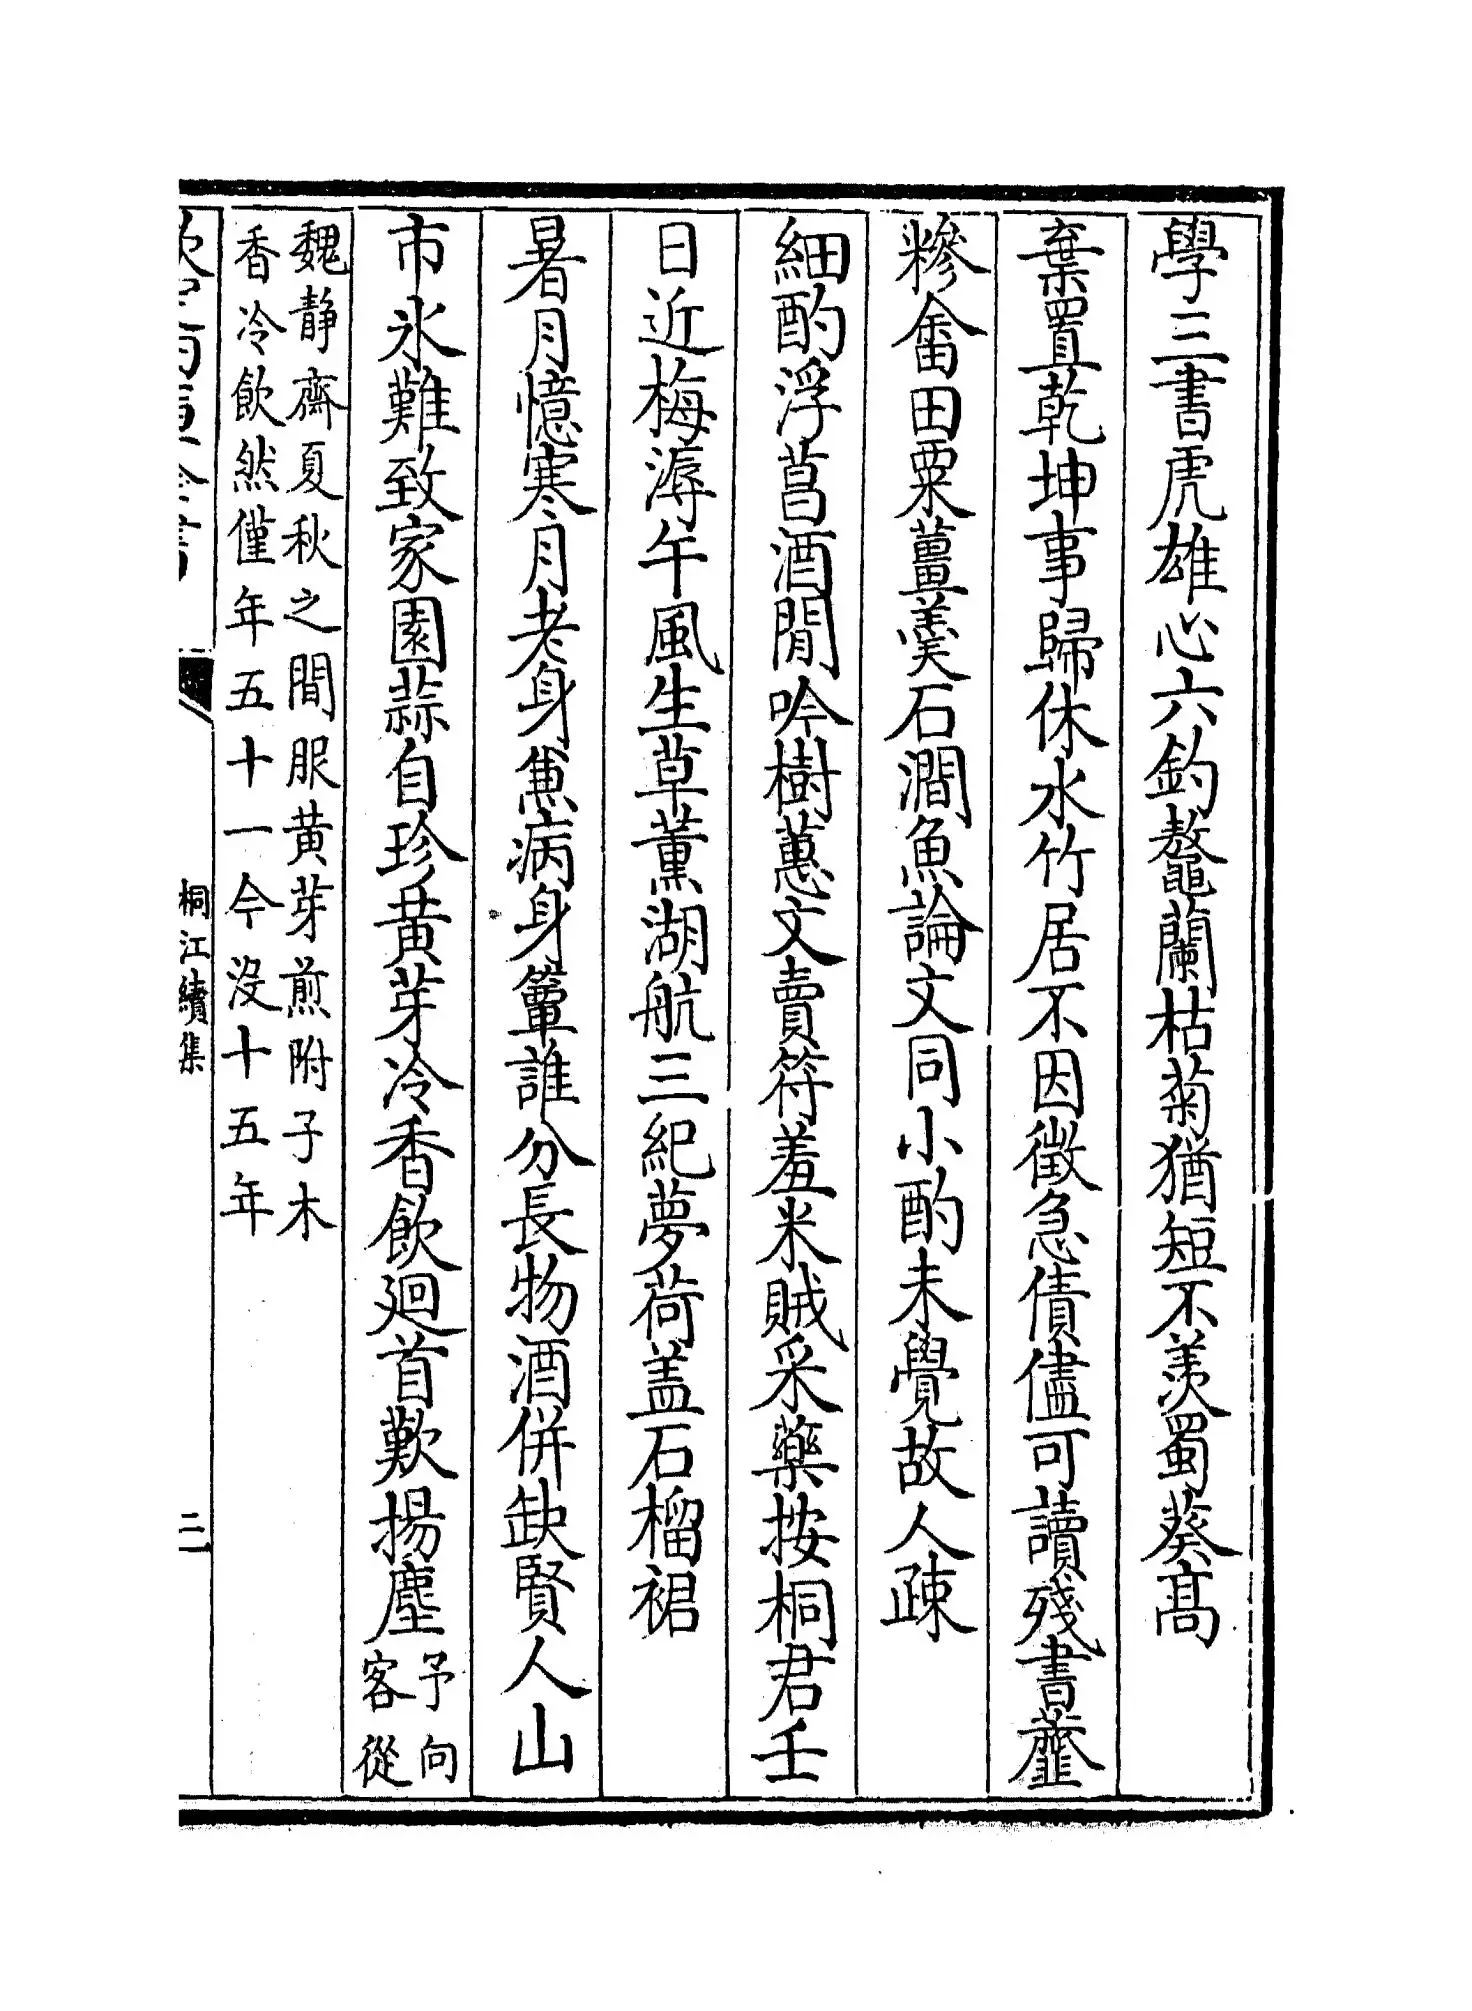 學三書虎雄心六釣鼇蘭枯菊猶短不羨蜀葵髙
棄置乾坤事歸休水竹居不因徵急債儘可讀殘書虀
糝畬田粟薑羮石澗魚論文同小酌未覺故人疎
細酌浮菖酒閒吟樹蕙文賣符羞米賊采藥按桐君壬
日近梅溽午風生草薫湖航三紀夢荷盖石榴裙
暑月憶寒月老身焦病身簟誰分長物酒併缺賢人山
市氷難致家園蒜自珍黄芽冷香飲廻首歎揚塵予向
客從
魏静齋夏秋之間服黄芽煎附子木
香冷飲然僅年五十一今没十五年
桐江續集
三